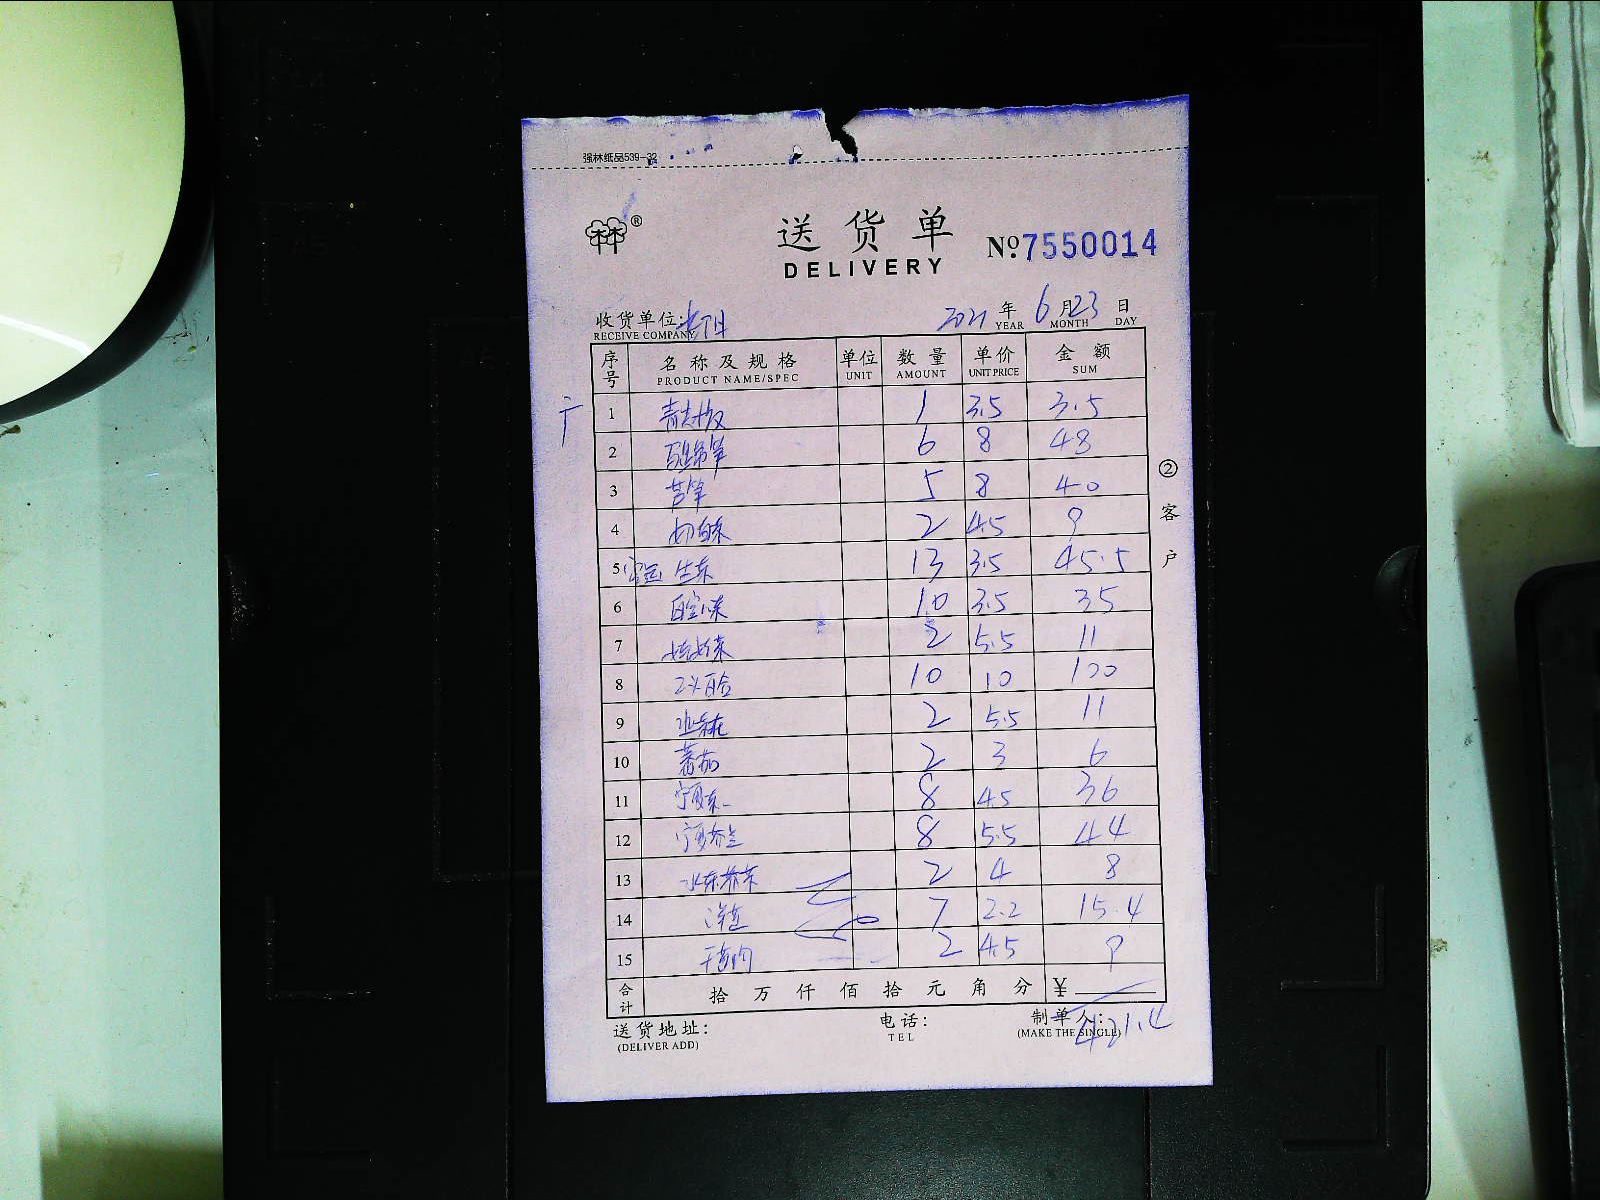 强林纸品539-32
®
送货单
DELIVERY
№:7550014
收货单位:
RECEIVE COMPANY
2021年6月23日
YEAR MONTH DAY
序号 名称及规格 单位 数量 单价 金额
PRODUCT NAME/SPEC UNIT AMOUNT UNIT PRICE SUM
1 1 3.5 3.5
2 6 8 48
3 芦笋 5 8 40
4 2 4.5 9
5 生菜 13 3.5 45.5
6 10 3.5 35
7 娃娃菜 2 5.5 11
8 百合 10 10 100
9 2 5.5 11
10 蕃茄 2 3 6
11 宁夏菜 8 4.5 36
12 宁夏芥兰 8 5.5 44
13 水东芥菜 2 4 8
14 7 2.2 15.4
15 2 4.5 9
合计 拾万仟佰拾元角分 ¥
421.4
送货地址:
(DELIVER ADD)
电话:
TEL
制单人:
(MAKE THE SINGLE)
②客户